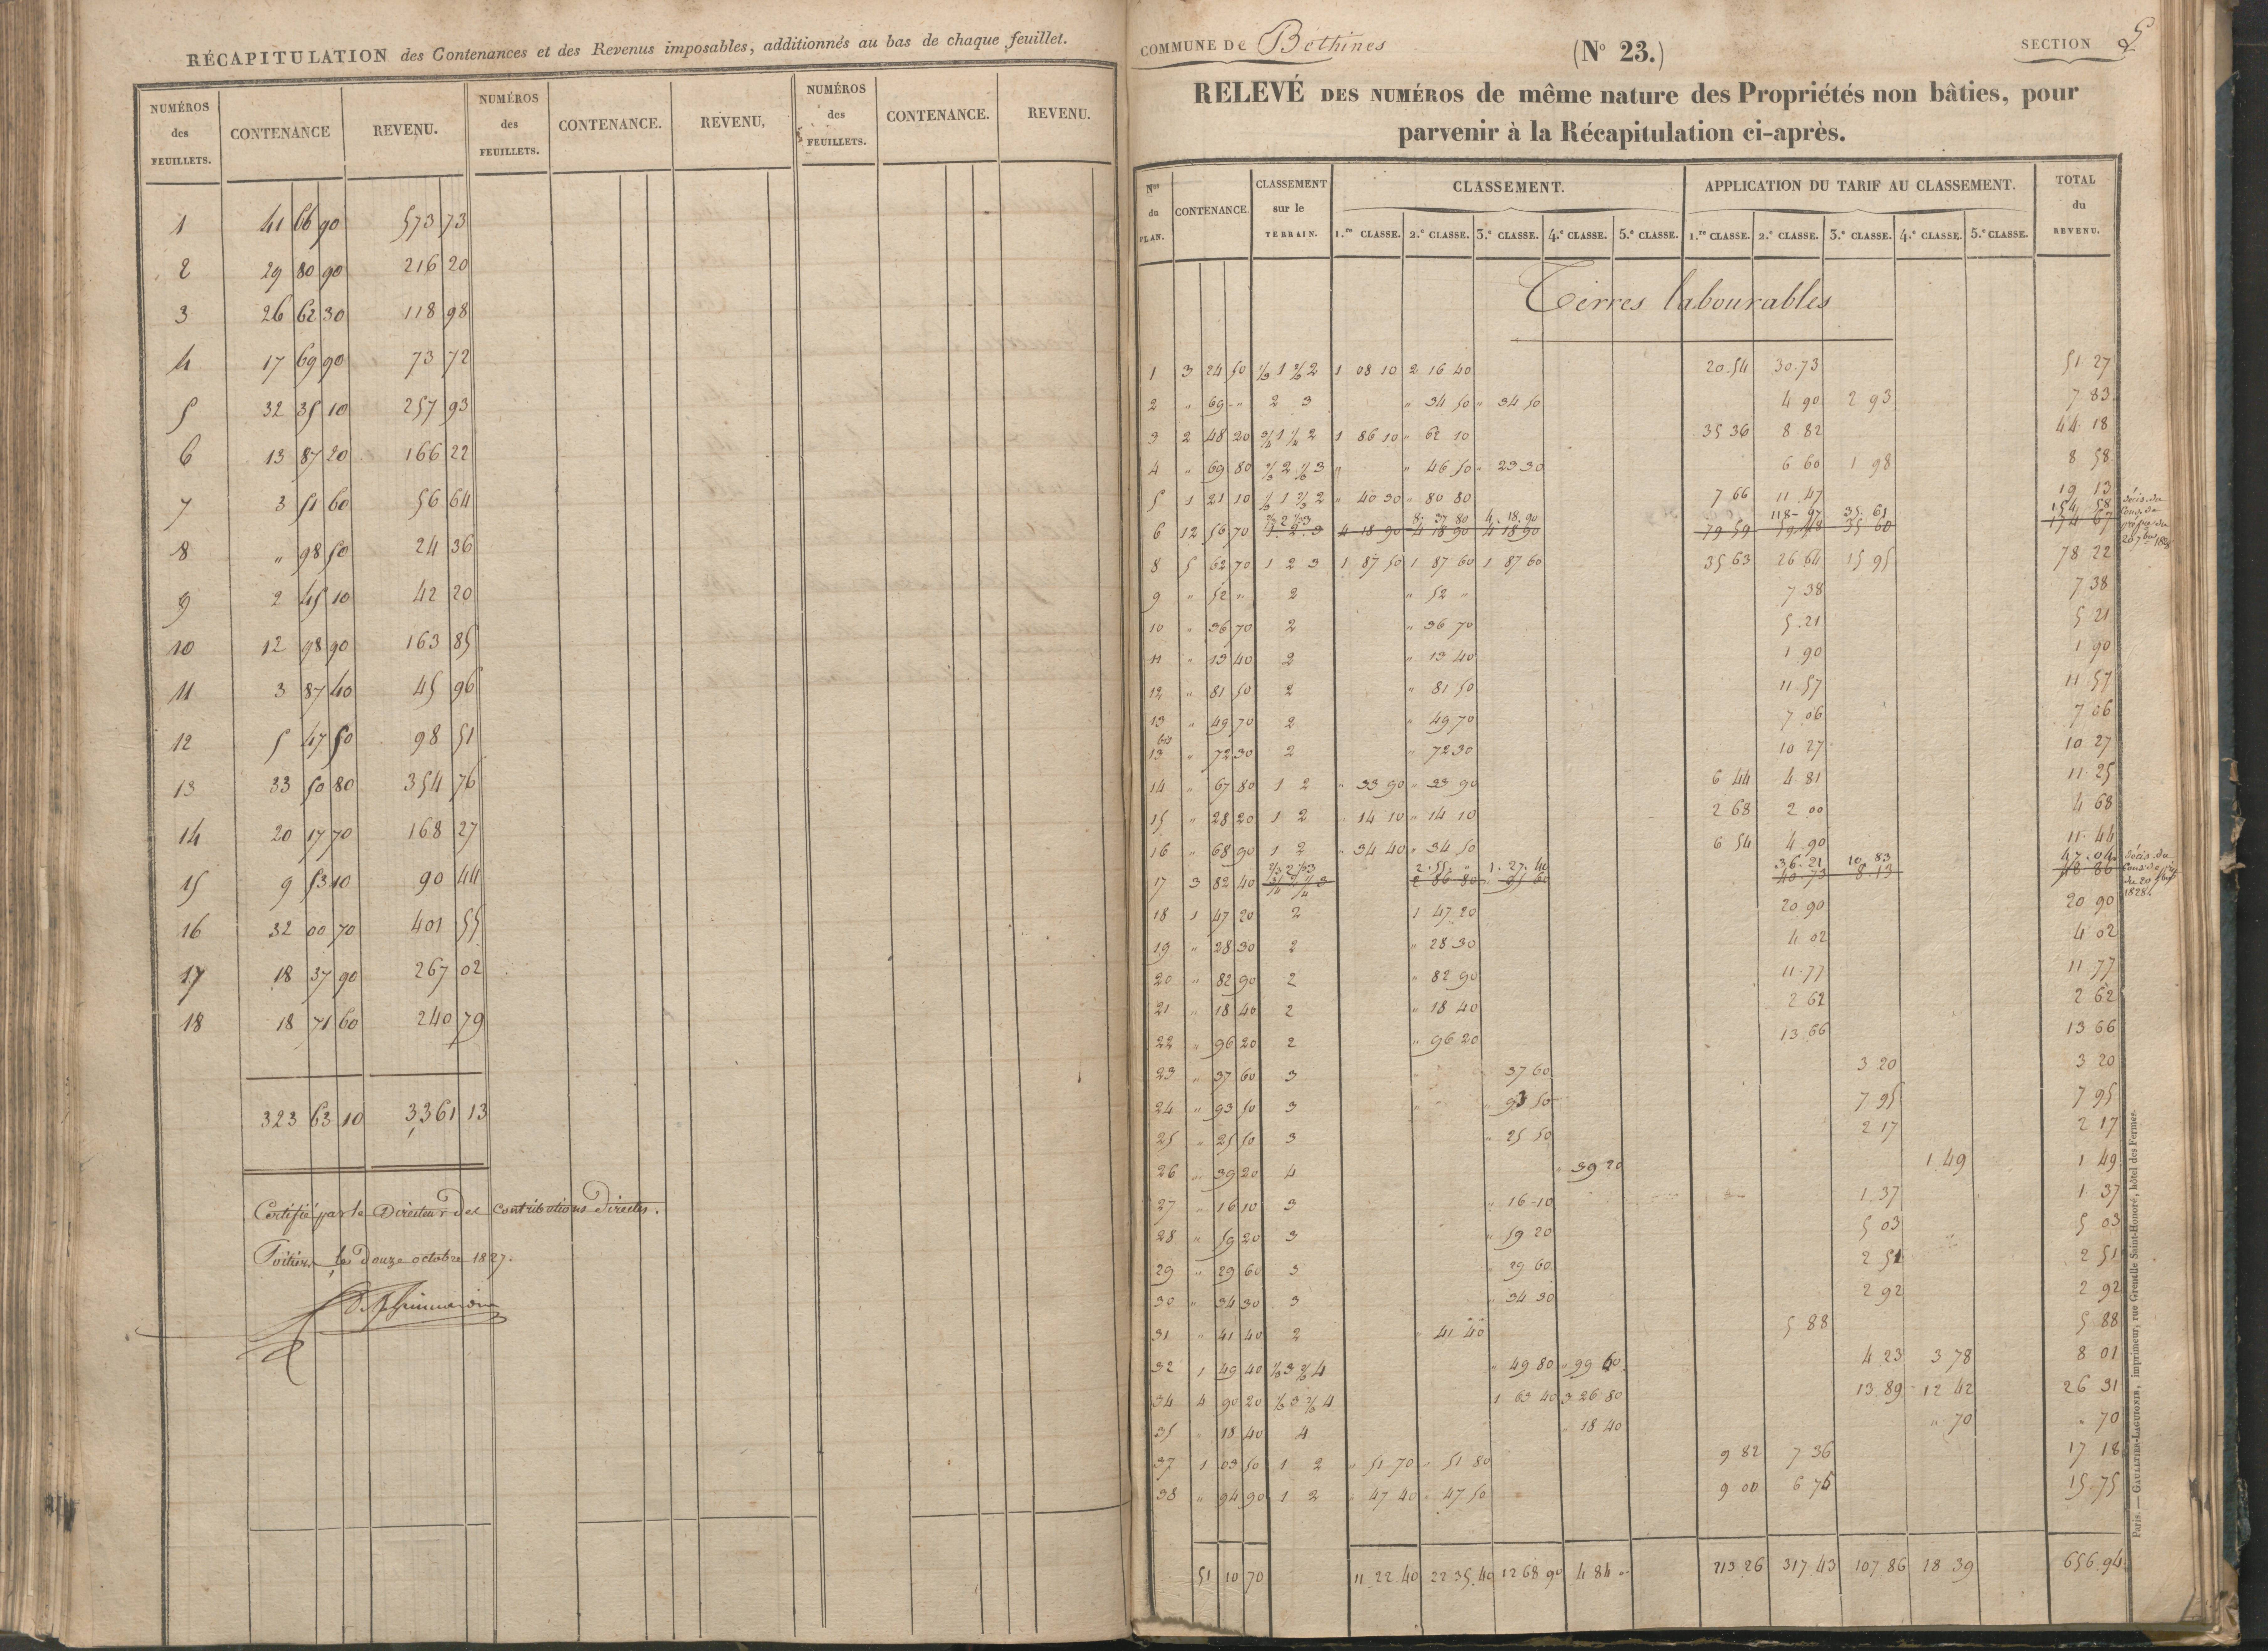 RÉCAPITULATION des Contenances et des Revenus imposables, additionnés au bas de chaque feuillet.
NUMÉROS des FEUILLETS. CONTENANCE REVENU. NUMÉROS des FEUILLETS. CONTENANCE. REVENU, NUMÉROS des FEUILLETS. CONTENANCE. REVENU.
1 41 66 90 573 73
2 29 80 90 216 20
3 26 62 30 118 98
4 17 69 90 73 72
5 32 35 10 257 93
6 13 87 20 166 22
7 3 51 60 56 64
8 " 98 50 24 36
9 2 45 10 42 20
10 12 98 90 163 85
11 3 87 40 45 96
12 5 47 50 98 51
13 33 50 80 354 76
14 20 17 70 168 27
15 9 53 10 90 44
16 32 00 70 401 55
17 18 37 90 267 02
18 18 71 60 240 79
323 63 10 3361 13
Certifié par le Directeur des Contributions Directes.
Poitiers le douze octobre 1827.
COMMUNE DE Béthines
(N° 23.)
SECTION
RELEVÉ DES NUMÉROS de même nature des Propriétés non bâties, pour
parvenir à la Récapitulation ci-après.
Nos du PLAN. CONTENANCE. CLASSEMENT sur le TERRAIN. CLASSEMENT. APPLICATION DU TARIF AU CLASSEMENT. TOTAL du REVENU.
1.re CLASSE. 2.e CLASSE. 3.e CLASSE. 4.e CLASSE. 5.e CLASSE. 1.re CLASSE. 2.e CLASSE. 3.e CLASSE. 4.e CLASSE. 5.e CLASSE.
Terres labourables
1 3 24 50 1/3 1 2/3 2 1 08 10 2 16 40 20.54 30.73 51 27
2 " 69 " 2 3 " 34 50 " 34 50 4 90 2 93 7 83
3 2 48 20 3/4 1 1/4 2 1 86 10 " 62 10 35 36 8 82 44 18
4 " 69 80 2/3 2 1/3 3 " " 46 50 " 23 30 6 60 1 98 8 58
5 1 21 10 1/3 1 2/3 2 " 40 30 " 80 80 7 66 11 47 19 13
2/3 2 1/3 3 8. 37 80 4. 18. 90 118-97 35. 61 154 58
6 12 56 70 1. 2. 3 4 18 90 4 18 90 4 18 90 79 59 35 60 174 67
8 5 62 70 1 2 3 1 87 50 1 87 60 1 87 60 35 63 26 64 15 95 78 22
9 " 52 " 2 " 52 " 7 38 7 38
10 " 36 70 2 " 36 70 5.21 5 21
11 " 13 40 2 " 13 40 1 90 1 90
12 " 81 50 2 " 81 50 11.57 11 57
13 " 49 70 2 " 49 70 7 06 7 06
13 bis " 72 30 2 " 72 30 10 27 10 27
14 " 67 80 1 2 " 33 90 " 33 90 6 44 4 81 11.25
15 " 28 20 1 2 " 14 10 " 14 10 2 68 2 00 4 68
16 " 68 90 1 2 " 34 40 " 34 50 6 54 4 90 11.44
2/3 2 1/3 3 2. 55. " 1. 27. 40 36. 21 10. 83 47. 04
17 3 82 40 3/4 2 1/4 3 2 86 80 " 95 60 40 73 8 13 48 86
18 1 47 20 2 1 47 20 20 90 20 90
19 " 28 30 2 " 28 30 4 02 4 02
20 " 82 90 2 " 82 90 11.77 11 77
21 " 18 40 2 " 18 40 2 62 2 62
22 " 96 20 2 " 96 20 13.66 13 66
23 " 37 60 3 37 60 3 20 3 20
24 " 93 50 3 " 93 50 7 95 7 95
25 " 25 50 3 " 25 50 2 17 2 17
26 " 39 20 4 " 39 20 1 49 1 49
27 " 16 10 3 " 16-10 1.37 1. 37
28 " 59 20 3 " 59 20 5 03 5 03
29 " 29 60 3 " 29 60 2 51 2 51
30 " 34 30 3 " 34 30 2 92 2 92
31 " 41 40 2 " 41 40 5 88 5 88
32 1 49 40 1/3 3 2/3 4 " 49 80 " 99 60 4 23 3 78 8 01
34 4 90 20 1/3 3 2/3 4 1 63 40 3 26 80 13.89 12 42 26 31
35 " 18 40 4 " 18 40 " 70 " 70
37 1 03 50 1 2 " 51 70 " 51 80 9 82 7 36 17 18
38 " 94 90 1 2 " 47 40 " 47 50 9 00 6 75 15.75
51 10 70 11 22 40 22 35 40 12 68 90 4 84 " 213 26 317 43 107 86 18 39 656 94
Paris. — GAULTIER-LAGUIONIE, imprimeur, rue Grenelle Saint-Honoré, hôtel des Fermes.